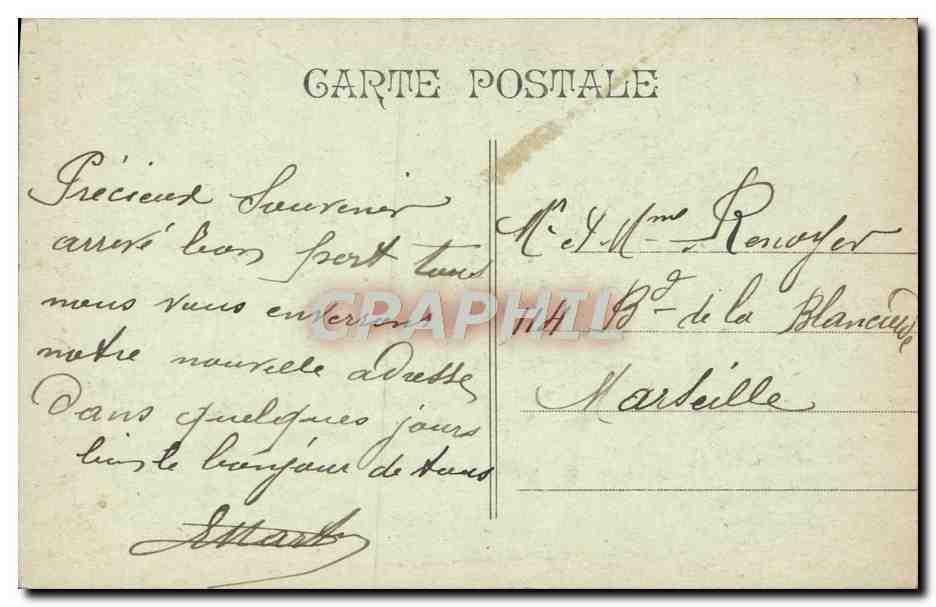 CARTE POSTALE
Précieux Souvenir
arrivé bon port tous
nous vous enverrons
notre nouvelle adresse
Dans quelques jours
le bonjour de tous
Mr et Mme Renoyer
114 Bd de la Blancarde
Marseille
CPAPHIL